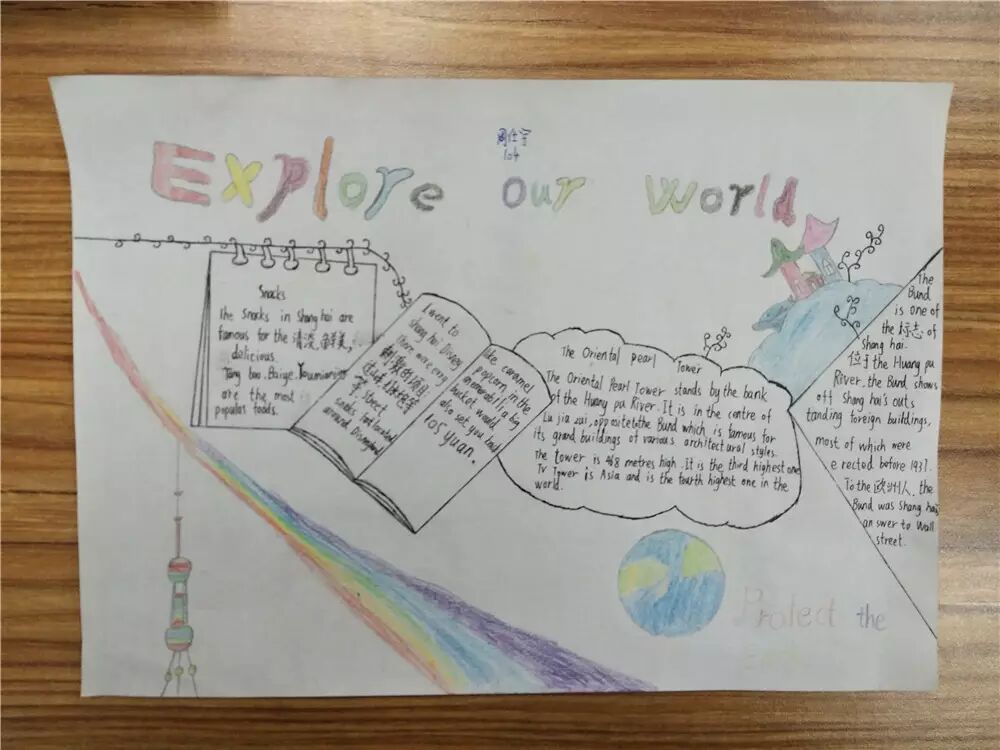 Explore our world
周仕宇
104
Snacks
The Snacks in Shang hai are
famous for the 清淡, 鲜美,
delicious.
Tang bao. Baiye. Youmianjin
are the most
popular foods.
I went to
Shang hai Disney
there were very
的项目
Street
snacks
around Disneyland
like caramel
popcorn in the
memorabilia big
bucket would
also set you back
105 yuan.
The Oriental pearl Tower
The Oriental Pearl Tower stands by the bank
of the Huang pu River. It is in the centre of
Lu jia zui, opposite to the Bund which is famous for
its grand buildings of various architectural styles.
The tower is 468 metres high. It is the third highest one
TV Tower is Asia and is the fourth highest one in the
world.
The
Bund
is one of
the 标志 of
Shang hai.
位于 the Huang pu
River. the Bund shows
off Shang hai's outs
tanding foreign buildings,
most of which were
e rected before 1937.
To the 欧洲人, the
Bund was Shang hai
an swer to Wall
street.
Protect the
Earth